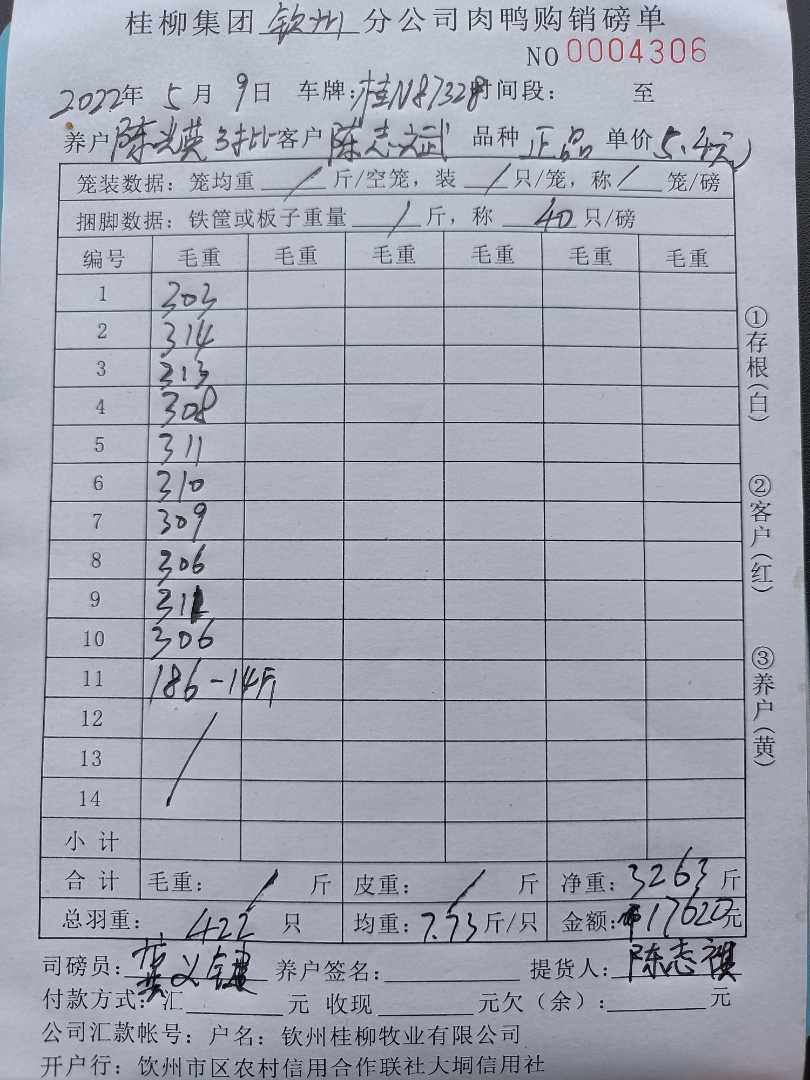 桂柳集团 钦州 分公司肉鸭购销磅单
NO 0004306
2022年 5月 9日 车牌:桂N87328 时间段: 至
养户 陈光英3批 客户 陈志斌 品种 正品 单价 5.4元
笼装数据:笼均重 / 斤/空笼,装 / 只/笼,称 / 笼/磅
捆脚数据:铁筐或板子重量 / 斤,称 40 只/磅
编号 毛重 毛重 毛重 毛重 毛重 毛重
1 303
2 314
3 313
4 308
5 311
6 310
7 309
8 306
9 311
10 306
11 186-14斤
12
13
14
小计
合计 毛重: / 斤 皮重: / 斤 净重: 3263 斤
总羽重: 422 只 均重: 7.73 斤/只 金额: 17620元
司磅员: 义 养户签名: 提货人: 陈志祺
付款方式:汇 元 收现 元欠(余): 元
公司汇款帐号:户名:钦州桂柳牧业有限公司
开户行:饮州市区农村信用合作联社大垌信用社
①存根(白)
②客户(红)
③养户(黄)